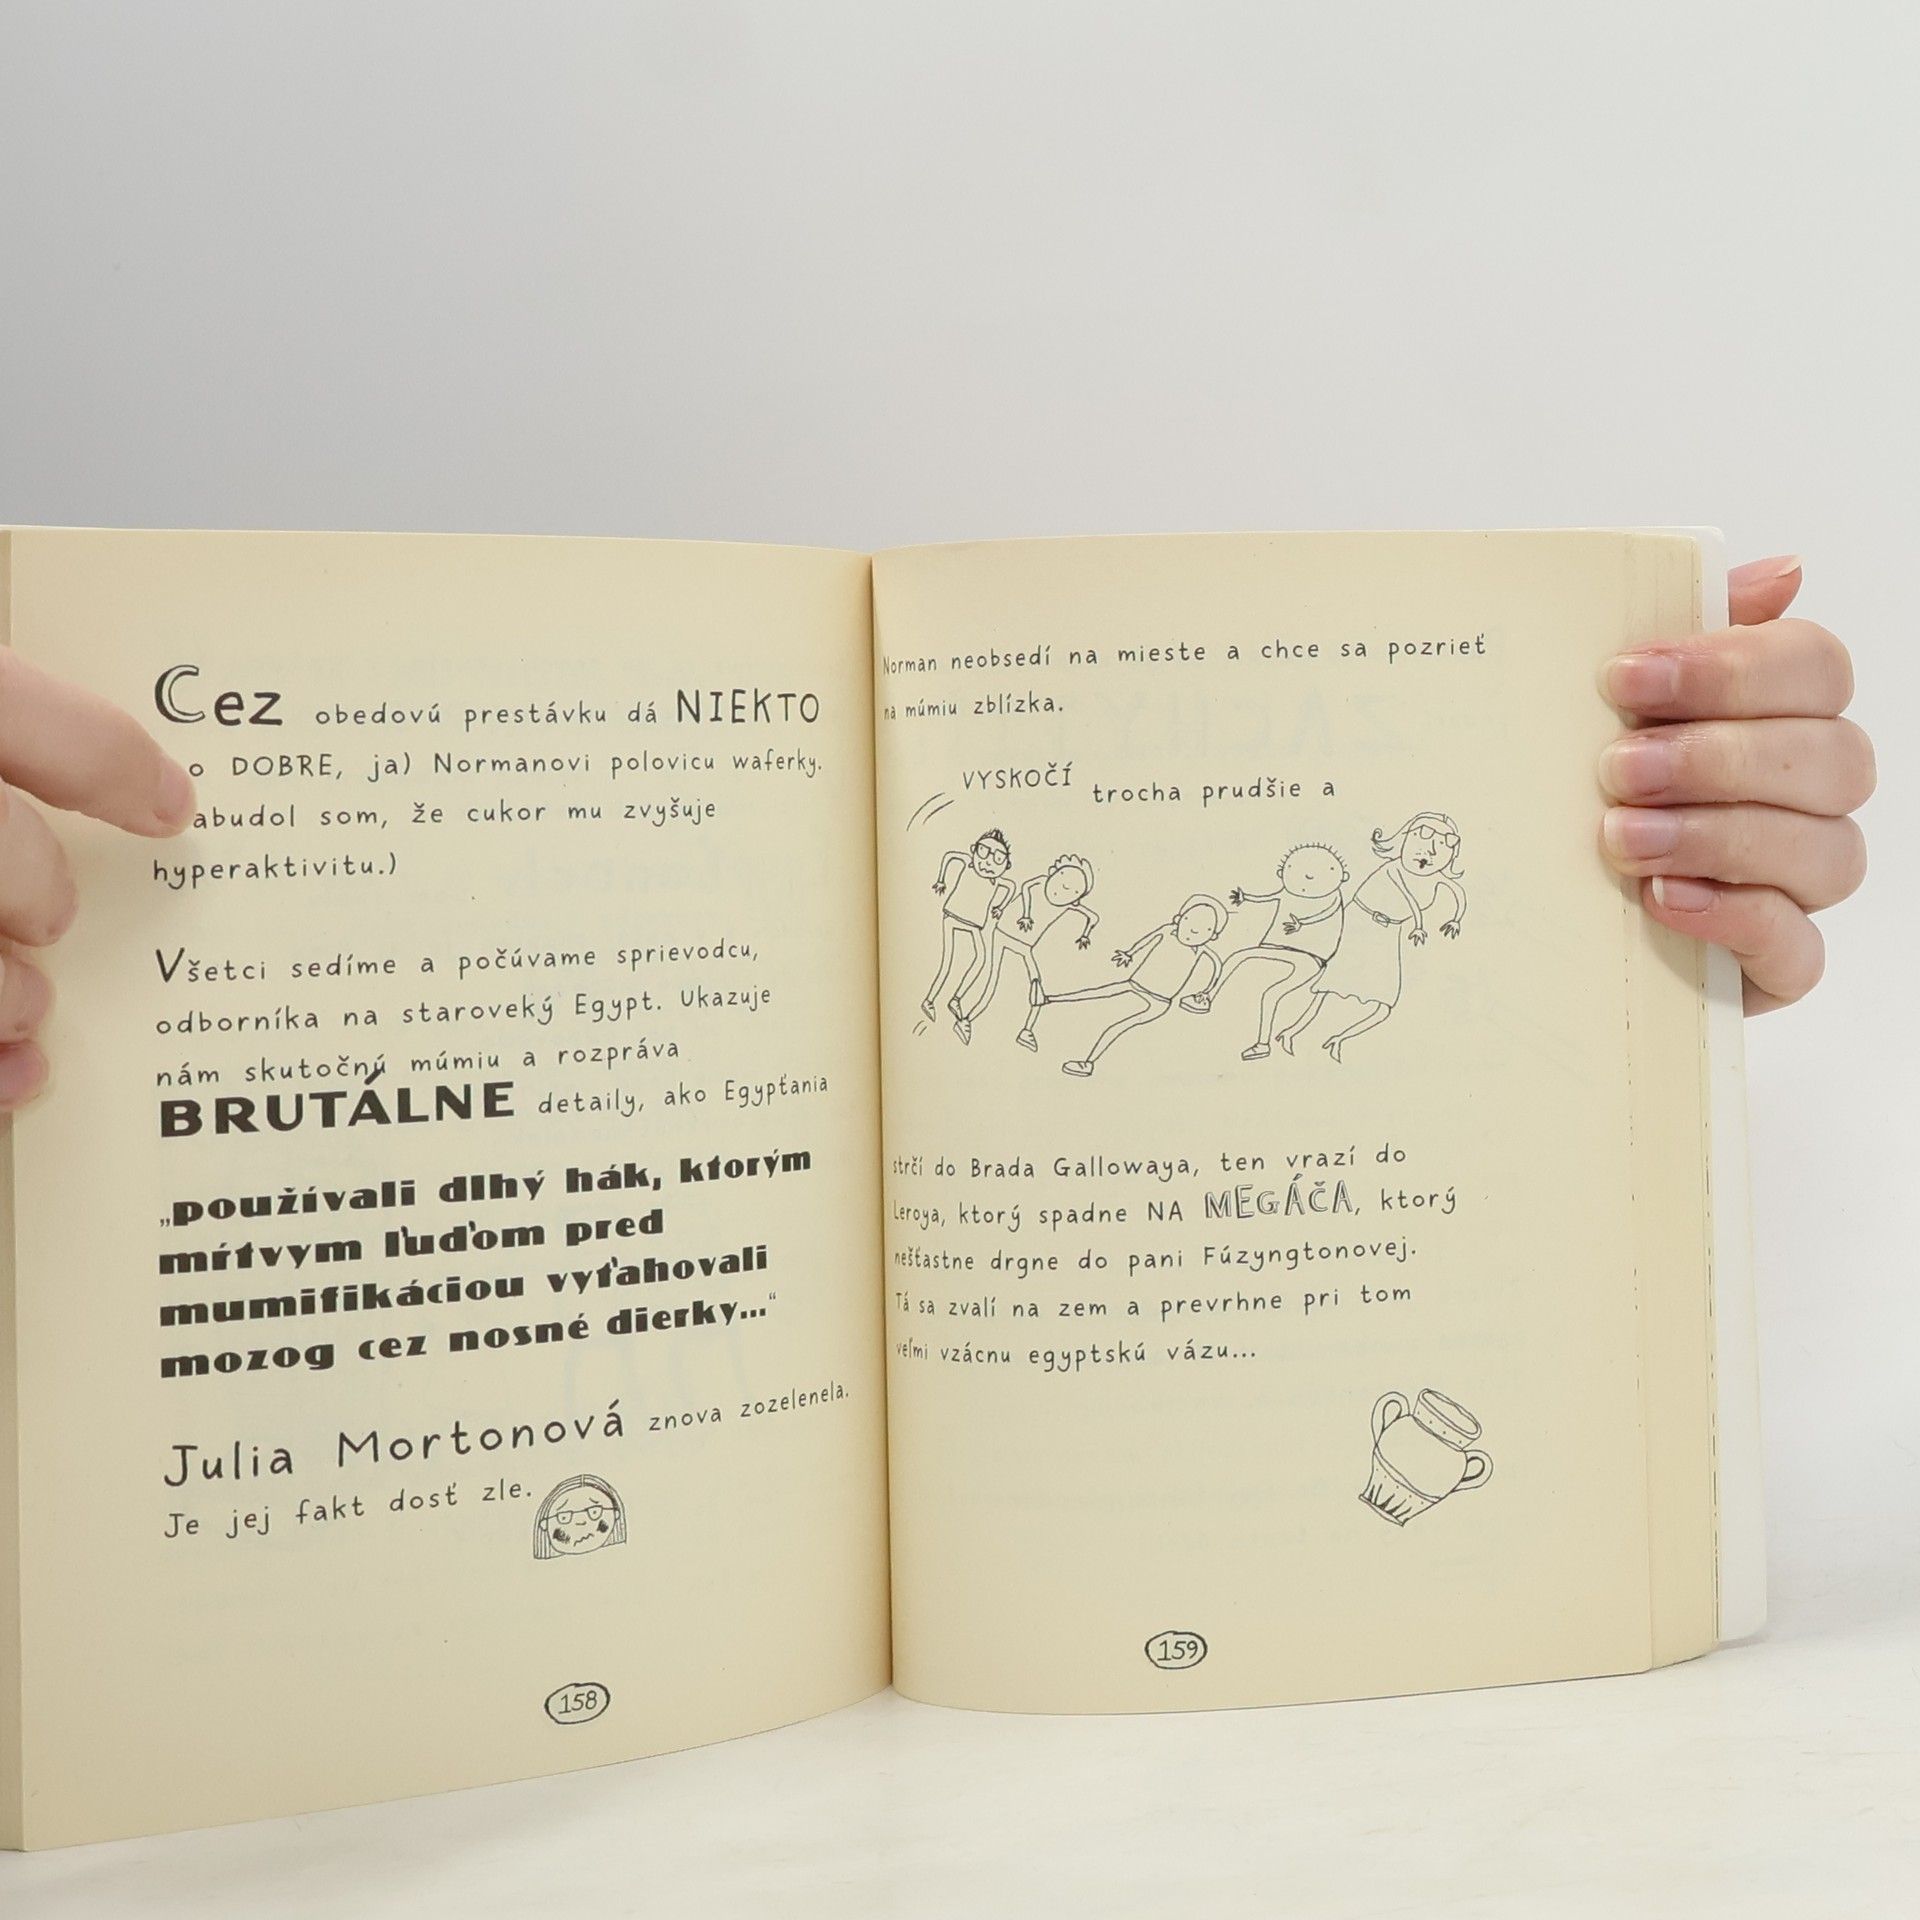 Cez obedovú prestávku dá NIEKTO
DOBRE, ja) Normanovi polovicu waferky.
som, že cukor mu zvyšuje
hyperaktivitu.)
Všetci sedíme a počúvame sprievodcu,
odborníka na staroveký Egypt. Ukazuje
nám skutočnú múmiu a rozpráva
BRUTÁLNE detaily, ako Egypťania
„používali dlhý hák, ktorým
mŕtvym ľuďom pred
mumifikáciou vyťahovali
mozog cez nosné dierky..."
Julia Mortonová znova zozelenela.
Je jej fakt dosť zle.
158
Norman neobsedí na mieste a chce sa pozrieť
na múmiu zblízka.
VYSKOČÍ trocha prudšie a
strčí do Brada Gallowaya, ten vrazí do
Leroya, ktorý spadne NA MEGÁČA, ktorý
nešťastne drgne do pani Fúzyngtonovej.
Tá sa zvalí na zem a prevrhne pri tom
veľmi vzácnu egyptskú vázu...
159